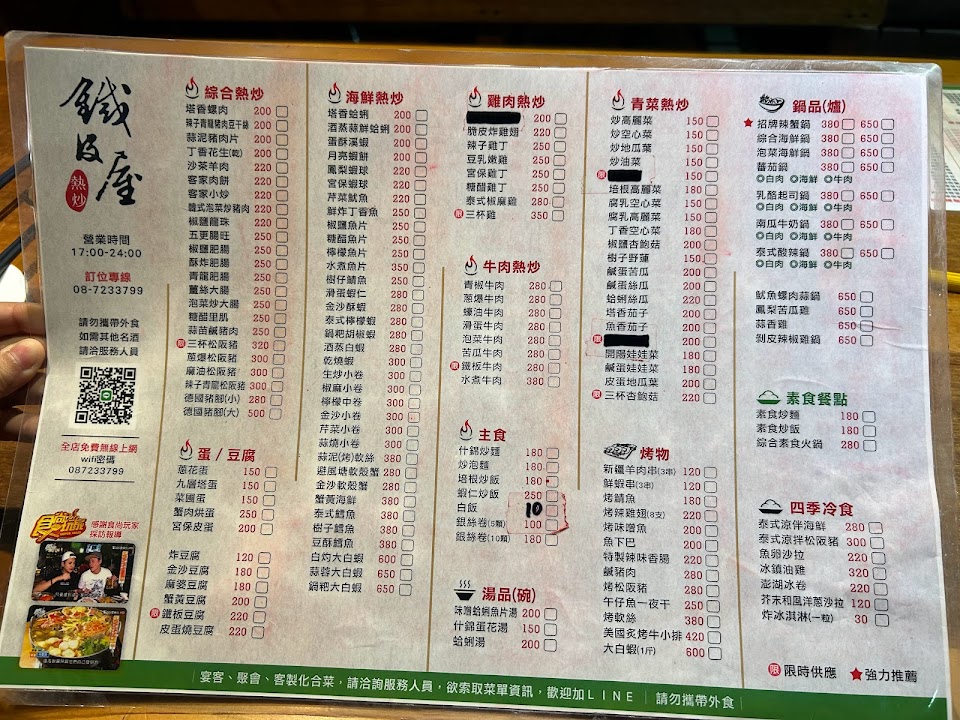 鐵皮屋
熱炒
營業時間
17:00-24:00
訂位專線
08-7233799
請勿攜帶外食
如需其他名酒
請洽服務人員
全店免費無線上網
wifi密碼
087233799
食尚玩家
感謝食尚玩家
採訪報導
綜合熱炒
塔香螺肉 200
辣子青龍豬肉豆干絲 200
蒜泥豬肉片 220
丁香花生(乾) 200
沙茶羊肉 220
客家肉餅 220
客家小炒 220
韓式泡菜炒豬肉 220
椒鹽龍珠 220
五更腸旺 250
椒鹽肥腸 250
酥炸肥腸 250
青龍肥腸 250
薑絲大腸 250
泡菜炒大腸 250
糖醋里肌 250
蒜苗鹹豬肉 250
限 三杯松阪豬 320
蔥爆松阪豬 300
麻油松阪豬 300
辣子青龍松阪豬 300
德國豬腳(小) 280
德國豬腳(大) 500
蛋/豆腐
蔥花蛋 150
九層塔蛋 150
菜圃蛋 150
蟹肉烘蛋 250
宮保皮蛋 200
炸豆腐 120
金沙豆腐 180
麻婆豆腐 180
蟹黃豆腐 200
限 鐵板豆腐 220
皮蛋燒豆腐 220
海鮮熱炒
塔香蛤蜊 200
酒蒸蒜鮮蛤蜊 200
蛋酥溪蝦 200
月亮蝦餅 200
鳳梨蝦球 220
宮保蝦球 220
芹菜魷魚 220
鮮炸丁香魚 250
椒鹽魚片 250
糖醋魚片 250
檸檬魚片 250
水煮魚片 350
樹仔鯖魚 250
滑蛋蝦仁 280
金沙蝦 280
泰式檸檬蝦 280
鍋粑胡椒蝦 280
酒蒸白蝦 280
乾燒蝦 300
生炒小卷 300
椒麻小卷 300
檸檬中卷 300
金沙小卷 300
芹菜小卷 300
蒜燒小卷 300
蒜泥(烤)軟絲 380
避風塘軟殼蟹 280
金沙軟殼蟹 280
蟹黃海鮮 380
泰式鱈魚 380
樹子鱈魚 380
豆酥鱈魚 380
白灼大白蝦 600
蒜蓉大白蝦 650
鍋粑大白蝦 650
雞肉熱炒
200
脆皮炸雞翅 220
辣子雞丁 250
豆乳嫩雞 250
宮保雞丁 250
糖醋雞丁 250
泰式椒麻雞 280
限 三杯雞 350
牛肉熱炒
青椒牛肉 280
蔥爆牛肉 280
蠔油牛肉 280
滑蛋牛肉 280
泡菜牛肉 280
苦瓜牛肉 280
限 鐵板牛肉 380
水煮牛肉 380
主食
什錦炒麵 180
炒泡麵 180
培根炒飯 180
蝦仁炒飯 250
白飯 10
銀絲卷(5顆) 100
銀絲卷(10顆) 180
湯品(碗)
味噌蛤蜊魚片湯 200
什錦蛋花湯 150
蛤蜊湯 200
青菜熱炒
炒高麗菜 150
炒空心菜 150
炒地瓜葉 150
炒油菜 150
限 150
培根高麗菜 180
腐乳空心菜 180
腐乳高麗菜 180
丁香空心菜 180
椒鹽杏鮑菇 200
樹子野蓮 150
鹹蛋苦瓜 200
鹹蛋絲瓜 200
蛤蜊絲瓜 220
塔香茄子 200
魚香茄子 200
限 200
開陽娃娃菜 180
鹹蛋娃娃菜 180
皮蛋地瓜葉 200
限 三杯杏鮑菇 220
烤物
新疆羊肉串(3串) 120
鮮蝦串(3串) 120
烤鯖魚 180
烤辣雞翅(8支) 220
烤味噌魚 200
魚下巴 200
特製辣味香腸 220
鹹豬肉 280
烤松阪豬 280
午仔魚一夜干 250
烤軟絲 380
美國炙烤牛小排 420
大白蝦(1斤) 600
鍋品(爐)
★ 招牌辣蟹鍋 380 650
綜合海鮮鍋 380 650
泡菜海鮮鍋 380 650
蕃茄鍋 380 650
◎白肉 ◎海鮮 ◎牛肉
乳酪起司鍋 380 650
◎白肉 ◎海鮮 ◎牛肉
南瓜牛奶鍋 380 650
◎白肉 ◎海鮮 ◎牛肉
泰式酸辣鍋 380 650
◎白肉 ◎海鮮 ◎牛肉
魷魚螺肉蒜鍋 650
鳳梨苦瓜雞 650
蒜香雞 650
剝皮辣椒雞鍋 650
素食餐點
素食炒麵 180
素食炒飯 180
綜合素食火鍋 280
四季冷食
泰式涼伴海鮮 280
泰式涼拌松阪豬 300
魚卵沙拉 220
冰鎮油雞 320
澎湖冰卷 220
芥末和風洋蔥沙拉 120
炸冰淇淋(一粒) 30
限 限時供應 ★強力推薦
宴客、聚會、客製化合菜，請洽詢服務人員，欲索取菜單資訊，歡迎加LINE | 請勿攜帶外食